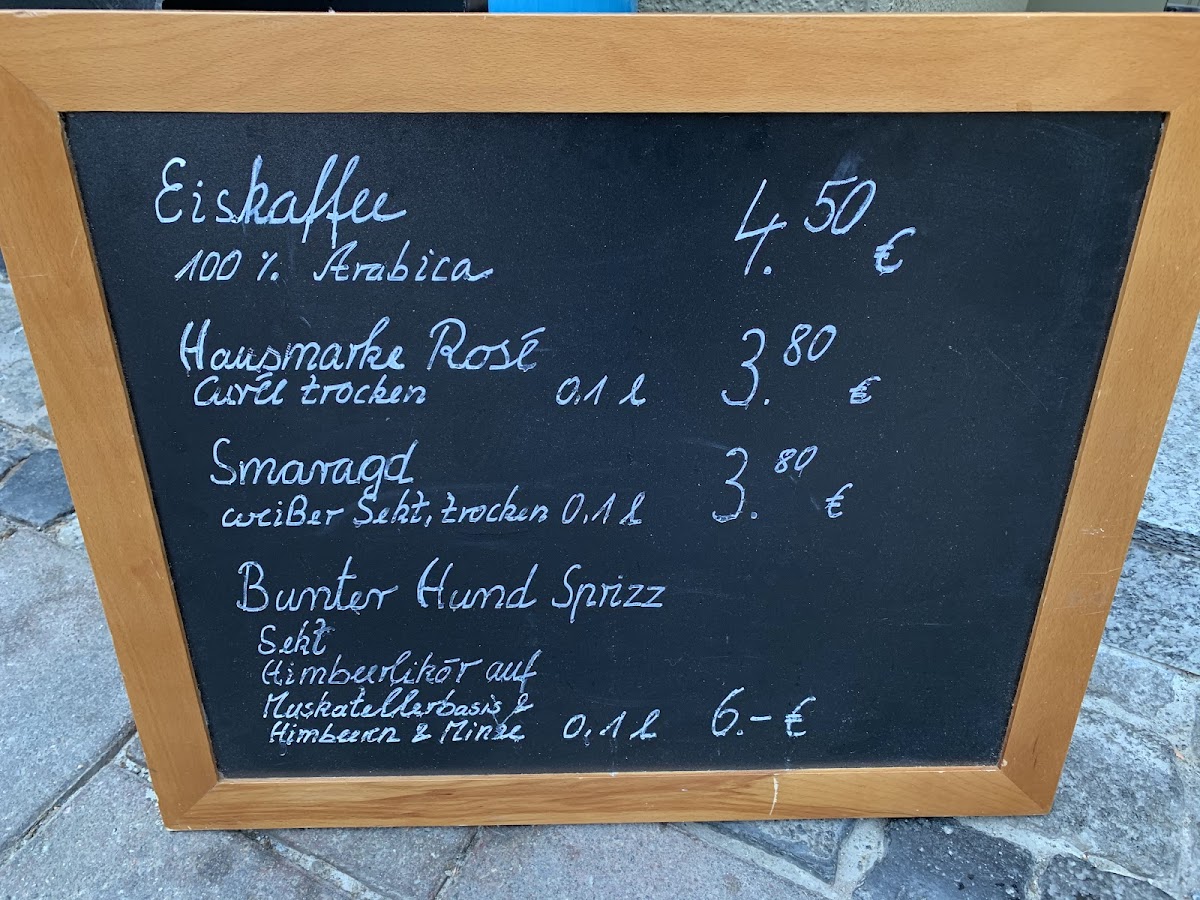 Eiskaffee 4.50 €
100 % Arabica
Hausmarke Rosé
Curéé trocken 0,1 l 3.80 €
Smaragd
weißer Sekt, trocken 0,1 l 3.80 €
Bunter Hund Sprizz
Sekt
Himbeerlikör auf
Muskatellerbasis &
Himbeeren & Minze 0,1 l 6.- €